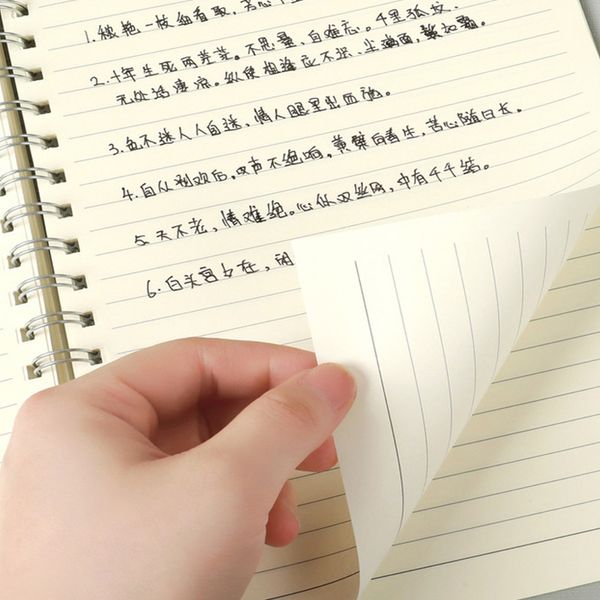 1.被艳一枝细看取，苦心千
2.十年生死两茫茫。不思量，自难忘。千里孤坟，
无处话凄凉。纵使相逢应不识，尘满面，鬓如霜。
3.色不迷人人自迷，情人眼里出西施。
4.自从别欢后，叹声不绝响。黄檗向春生，苦心随日长。
5.天不老，情难绝。心似双丝网，中有千千结。
6.白头宫女在，闲